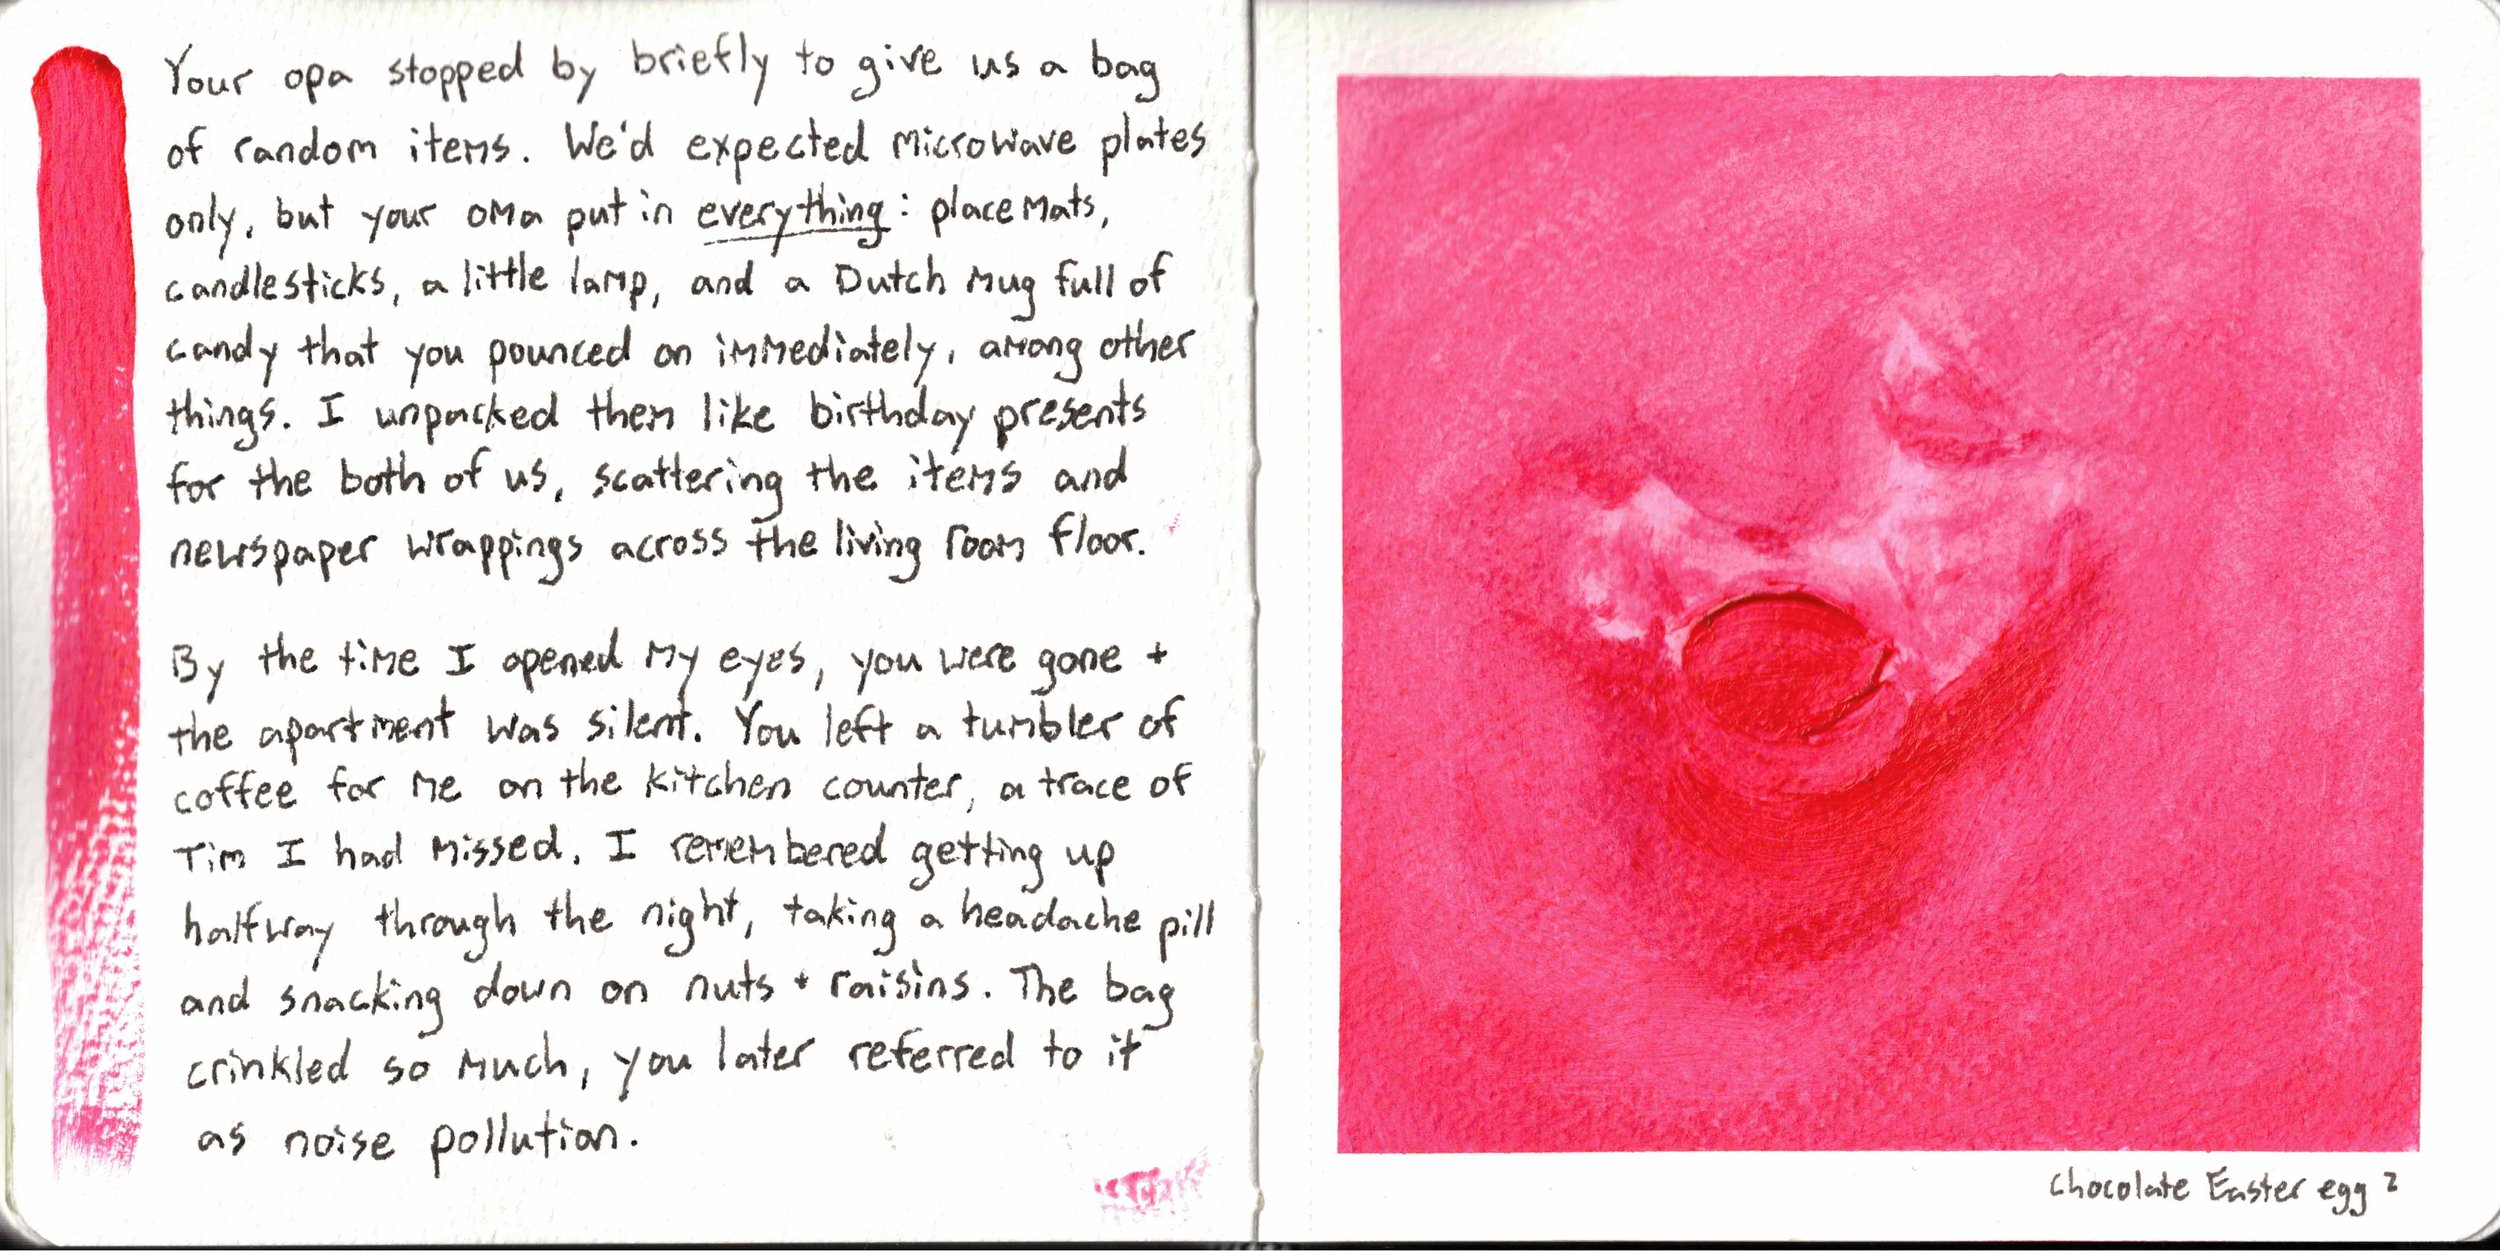 Your opa stopped by briefly to give us a bag
of random items. We'd expected microwave plates
only, but your oma put in everything: placemats,
candlesticks, a little lamp, and a Dutch mug full of
candy that you pounced on immediately, among other
things. I unpacked them like birthday presents
for the both of us, scattering the items and
newspaper wrappings across the living room floor.
By the time I opened my eyes, you were gone +
the apartment was silent. You left a tumbler of
coffee for me on the kitchen counter, a trace of
Tim I had missed. I remembered getting up
halfway through the night, taking a headache pill
and snacking down on nuts + raisins. The bag
crinkled so much, you later referred to it
as noise pollution.
Chocolate Easter egg 2